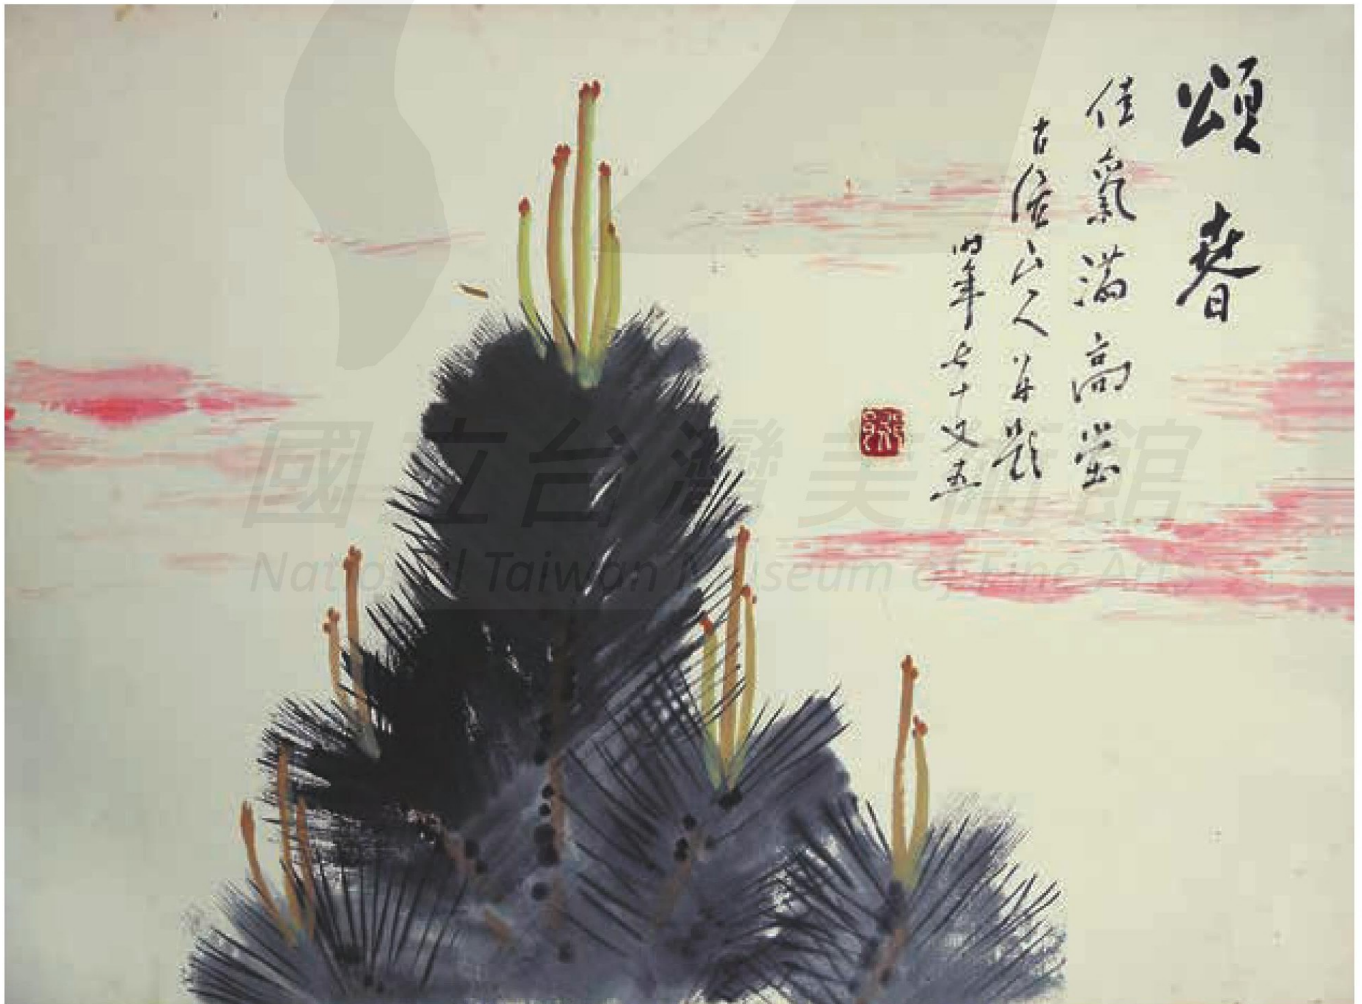 頌春
佳氣滿高堂
古山人并題
時年七十又五
國立台灣美術館
National Taiwan Museum of Fine Arts